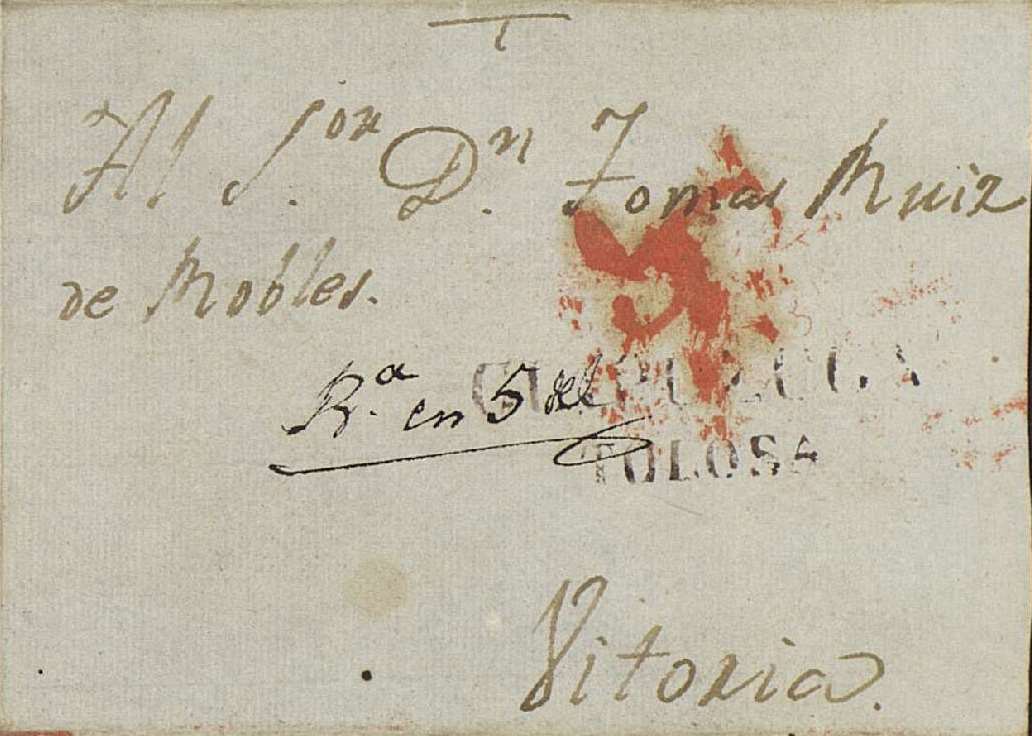 Al S.or D.n Tomas Ruiz
de Robles.
R.a en 5 del
GUIPUZCOA
TOLOSA
Vitoria.